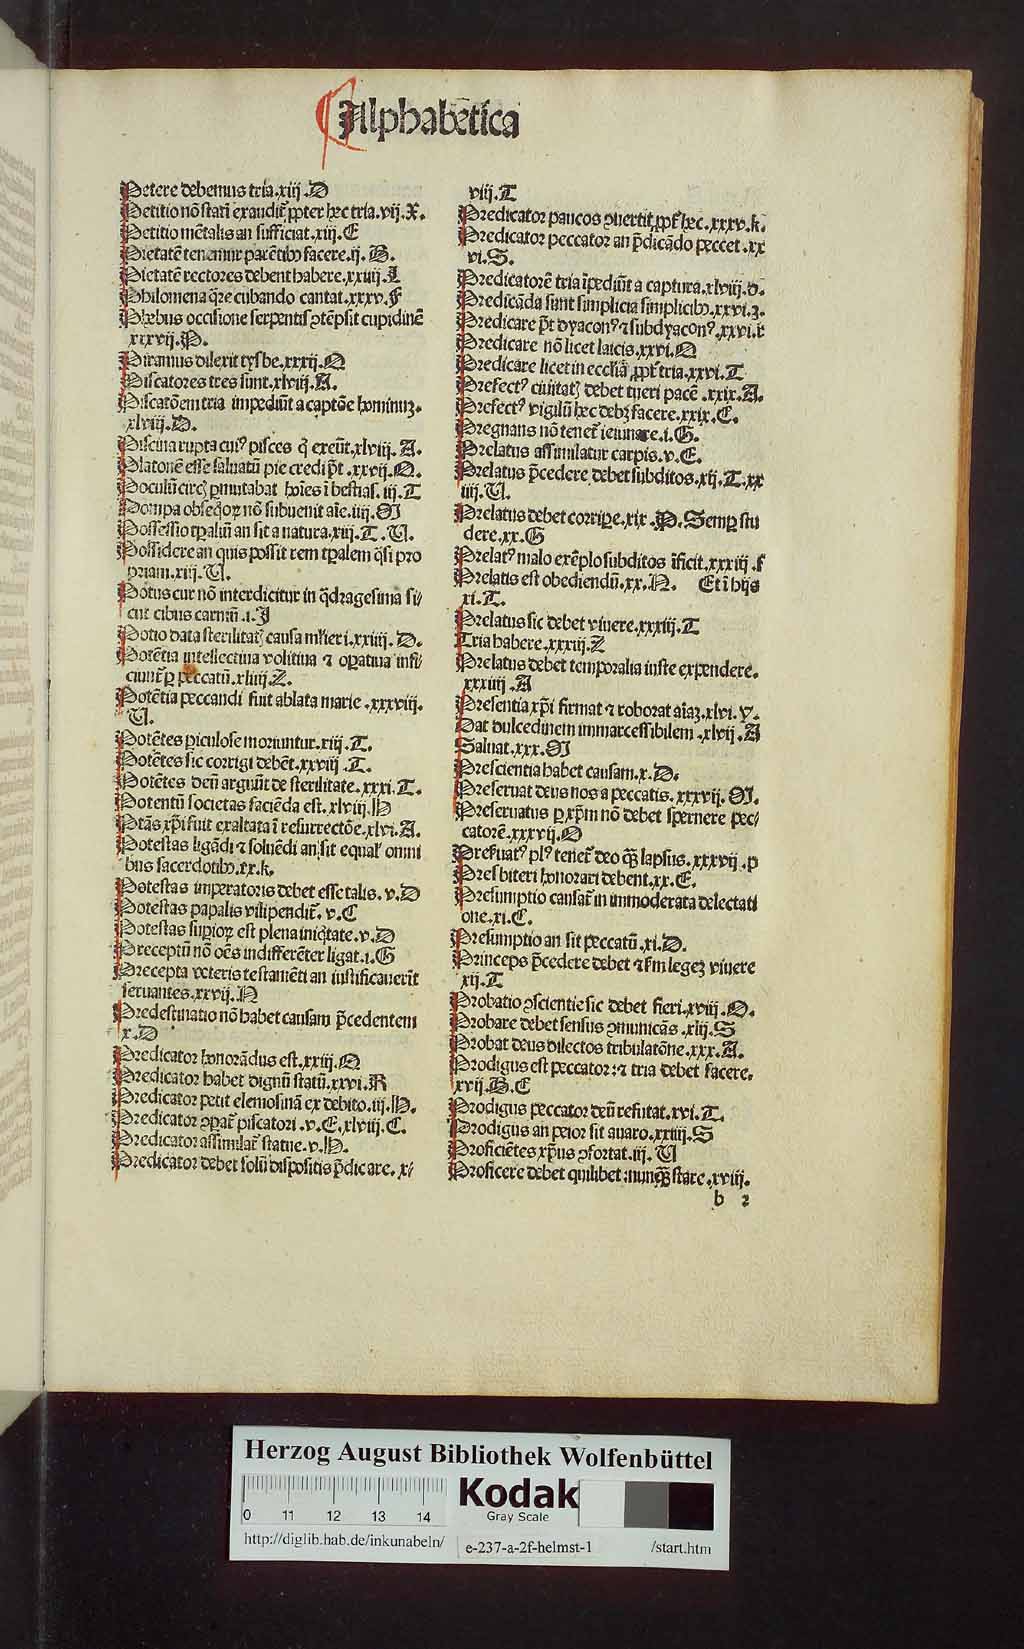 Alphabetica
Petere debemus tria.xiij.D
Petitio nō stati exaudit̄ ꝓpter hec tria.vij.X.
Petitio mētalis an sufficiat.xiij.E
Pietatē tenemur parētibꝰ facere.ij.B.
Pietatē rectores debent habere.xxiiij.L
Philomena q̄re cubando cantat.xxxv.F
Phebus occisione serpentis ꝯtēpsit cupidinē
xxxvij.P.
Piramus dilexit tysbe.xxxij.Q
Piscatores tres sunt.xlviij.A.
Piscatōem tria impediūt a captōe hominuꝫ.
xlviij.D.
Piscina rupta cuiꝰ pisces q̄ exeūt.xlviij.A.
Platonē esse saluatū pie credi p̄t.xxvij.Q.
Poculū circes ꝑmutabat hoīes ī bestias.iij.T
Pompa obsequioꝝ nō subuenit aīe.iiij.M
Possessio tꝑaliū an sit a natura.xiij.T.V.
Possidere an quis possit rem tꝑalem q̄si pro
priam.xiij.V.
Potus cur nō interdicitur in q̄dragesima si/
cut cibus carniū.i.J
Potio data sterilitatꝭ causa mulieri.xxiiij.D.
Potētia intellectiua volitiua ⁊ oꝑatiua infi/
ciunt̄ ꝑ peccatū.xliiij.Z.
Potētia peccandi fuit ablata marie.xxxviij.
V.
Potētes ꝑiculose moriuntur.xiij.T.
Potētes sic corrigi debēt.xxviij.T.
Potētes deū arguūt de sterilitate.xxxi.T.
Potentū societas faciēda est.xlviij.H
Ptās xp̄i fuit exaltata ī resurrectōe.xlvi.A.
Potestas ligādi ⁊ soluēdi an sit equal' omni
bus sacerdotibꝰ.xx.k.
Potestas imperatoris debet esse talis.v.D
Potestas papalis vilipendit̄.v.C
Potestas suꝑioꝝ est plena iniq̄tate.v.D
Preceptū nō oēs indifferēter ligat.i.G
Precepta veteris testamēti an iustificauerīt
seruantes.xxvij.N
Predestinatio nō habet causam p̄cedentem
x.D
Predicator honorādus est.xxiij.Q
Predicator habet dignū statū.xxvi.R
Predicator petit elemosinā ex debito.iij.H.
Predicator ꝯparat̄ piscatori.v.E.xlviij.C.
Predicator assimilat̄ statue.v.H.
Predicator debet solū dispositis p̄dicare.x/
viij.T
Predicator paucos ꝯuertit ꝓpt̄ hec.xxxv.k.
Predicator peccator an p̄dicādo peccet.xx
vi.S.
Predicatorē tria īpediūt a captura.xlviij.d.
Predicāda sunt simplicia simplicibꝰ.xxvi.ꝫ.
Predicare p̄t dyaconꝰ ⁊ subdyaconꝰ.xxvi.r
Predicare nō licet laicis.xxvi.Q
Predicare licet in ecclīa ꝓpt̄ tria.xxvi.T
Prefectꝰ ciuitatꝭ debet tueri pacē.xxix.A.
Prefectꝰ vigilū hec debꝫ facere.xxix.C.
Pregnans nō tenet̄ ieiunare.i.G.
Prelatus assimilatur carpis.v.E.
Prelatus p̄cedere debet subditos.xij.T.xx
iiij.V.
Prelatus debet corripe.xix.P. Semꝑ stu
dere.xx.G
Prelatꝰ malo exēplo subditos īficit.xxxiij.f
Prelatis est obediendū.xx.N. Et ī hijs
xi.T.
Prelatus sic debet viuere.xxxiij.T
Tria habere.xxxiij.Z
Prelatus debet temporalia iuste expendere.
xxxiiij.A
Presentia xp̄i firmat ⁊ roborat aīaꝫ.xlvi.v.
Dat dulcedinem immarcessibilem.xlvij.A
Saluat.xxx.M
Prescientia habet causam.x.D.
Preseruat deus nos a peccatis.xxxvij.M.
Preseruatus ꝑ xp̄m nō debet spernere pec/
catorē.xxxvij.O
Preẜuatꝰ plꝰ tenet̄ deo q̄ꝫ lapsus.xxxvij.p
Presbiteri honorari debent.xx.E.
Presumptio causat̄ in immoderata delectati
one.xi.C.
Presumptio an sit peccatū.xi.D.
Princeps p̄cedere debet ⁊ ẜm legeꝫ viuere
xij.T
Probatio ꝯscientie sic debet fieri.xviij.Q.
Probare debet sensus ꝯmunicās.xlij.S
Probat deus dilectos tribulatōne.xxx.A.
Prodigus est peccator:⁊ tria debet facere.
xvij.B.C
Prodigus peccator deū refutat.xvi.T.
Prodigus an peior sit auaro.xxiiij.S
Proficiētes xp̄us ꝯfortat.iij.V
Proficere debet quilibet:nunq̄ꝫ stare.xviij.
b 2
Herzog August Bibliothek Wolfenbüttel
0 11 12 13 14
Kodak
Gray Scale
http://diglib.hab.de/inkunabeln/ e-237-a-2f-helmst-1 /start.htm